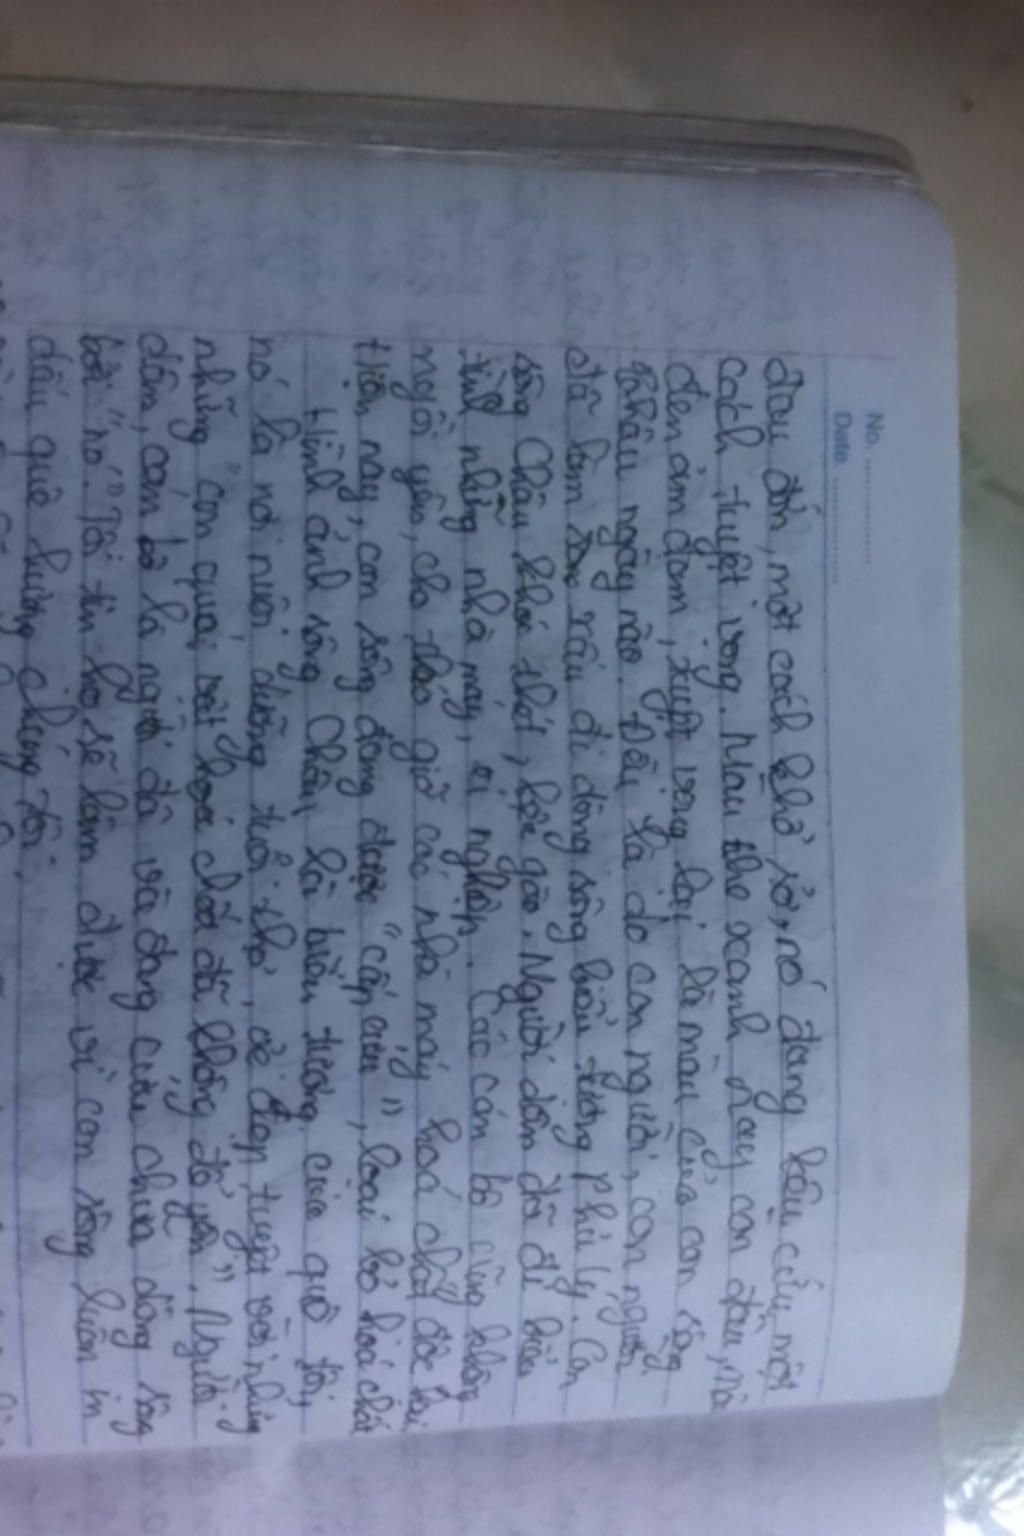 No. ............
Date ............
đau đớn, một cách khổ sở, nó đang kêu cứu một
cách tuyệt vọng. Màu the xanh nay còn đâu, nó
đen ảm đạm, tuyệt vọng lại là màu của con sông
châu ngày nào. Đều là do con người, con người
đã làm xấu đi dòng sông biểu tượng Phủ Lý. Con
sông Châu khói thét, kêu gào. Người dân đã đi biểu
tình những nhà máy, xí nghiệp. Các cán bộ cũng không
ngồi yên, cho tháo giỡ các nhà máy hoá chất độc hại
Hiện nay, con sông đang được "cấp cứu", loại bỏ hoá chất
Hình ảnh sông Châu là biểu tượng của quê tôi,
nó là nơi nuôi dưỡng tuổi thơ, vẻ đẹp tuyệt vời nhưng
những "con quái vật hoá chất đã không để yên". Người
dân, cán bộ là người đã và đang cứu chữa dòng sông
bởi "nó". Tôi tin họ sẽ làm được vì con sông luôn in
dấu quê hương chúng tôi.